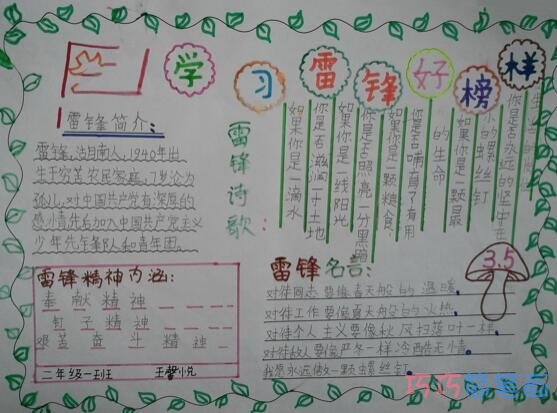 学习雷锋好榜样
雷锋简介:
雷锋,湖南人,1940年出
生于穷苦农民家庭,7岁沦为
孤儿,对中国共产党有深厚的
感情先后加入中国共产党主义
少年先锋队和青年团。
雷锋诗歌:
如果你是一滴水
你是否滋润一寸土地
如果你是一线阳光
你是否照亮一分黑暗
如果你是一颗粮食
你是否哺育了有用
的生命
如果你是一颗最
小的螺丝钉
你是否永远的坚守在
雷锋精神内涵:
奉献精神
钉子精神
艰苦奋斗精神
二年级一班
雷锋名言:
3.5
对待同志要像春天般的温暖
对待工作要像夏天般的火热
对待个人主义要像秋风扫落叶一样
对待敌人要像严冬一样冷酷无情
我愿永远做一颗螺丝钉